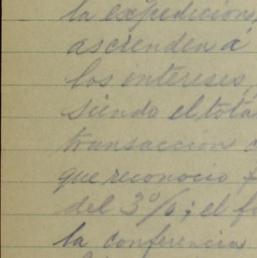 la expedicion,
ascienden á
los intereses,
siendo el tota
transaccion
que reconocio
del 3%; el f
la conferencia